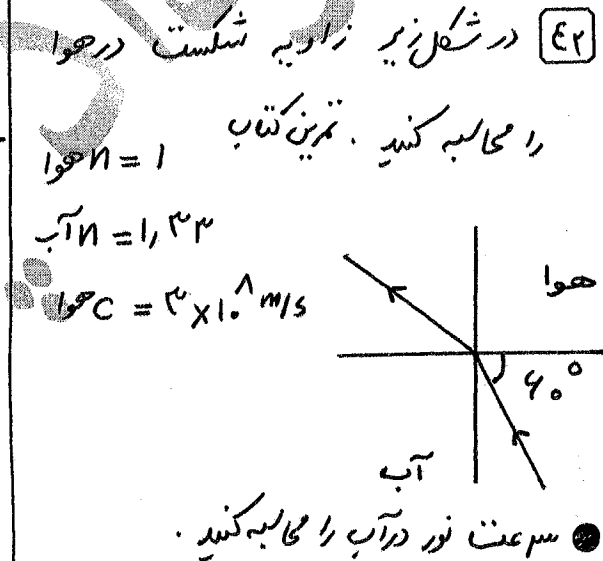 ۴۲ در شکل زیر زاویه شکست در هوا
را محاسبه کنید . تمرین کتاب
n هوا = ۱
n آب = ۱,۳۳
C هوا = ۳×۱۰^۸ m/s
هوا
۶۰°
آب
● سرعت نور در آب را محاسبه کنید .